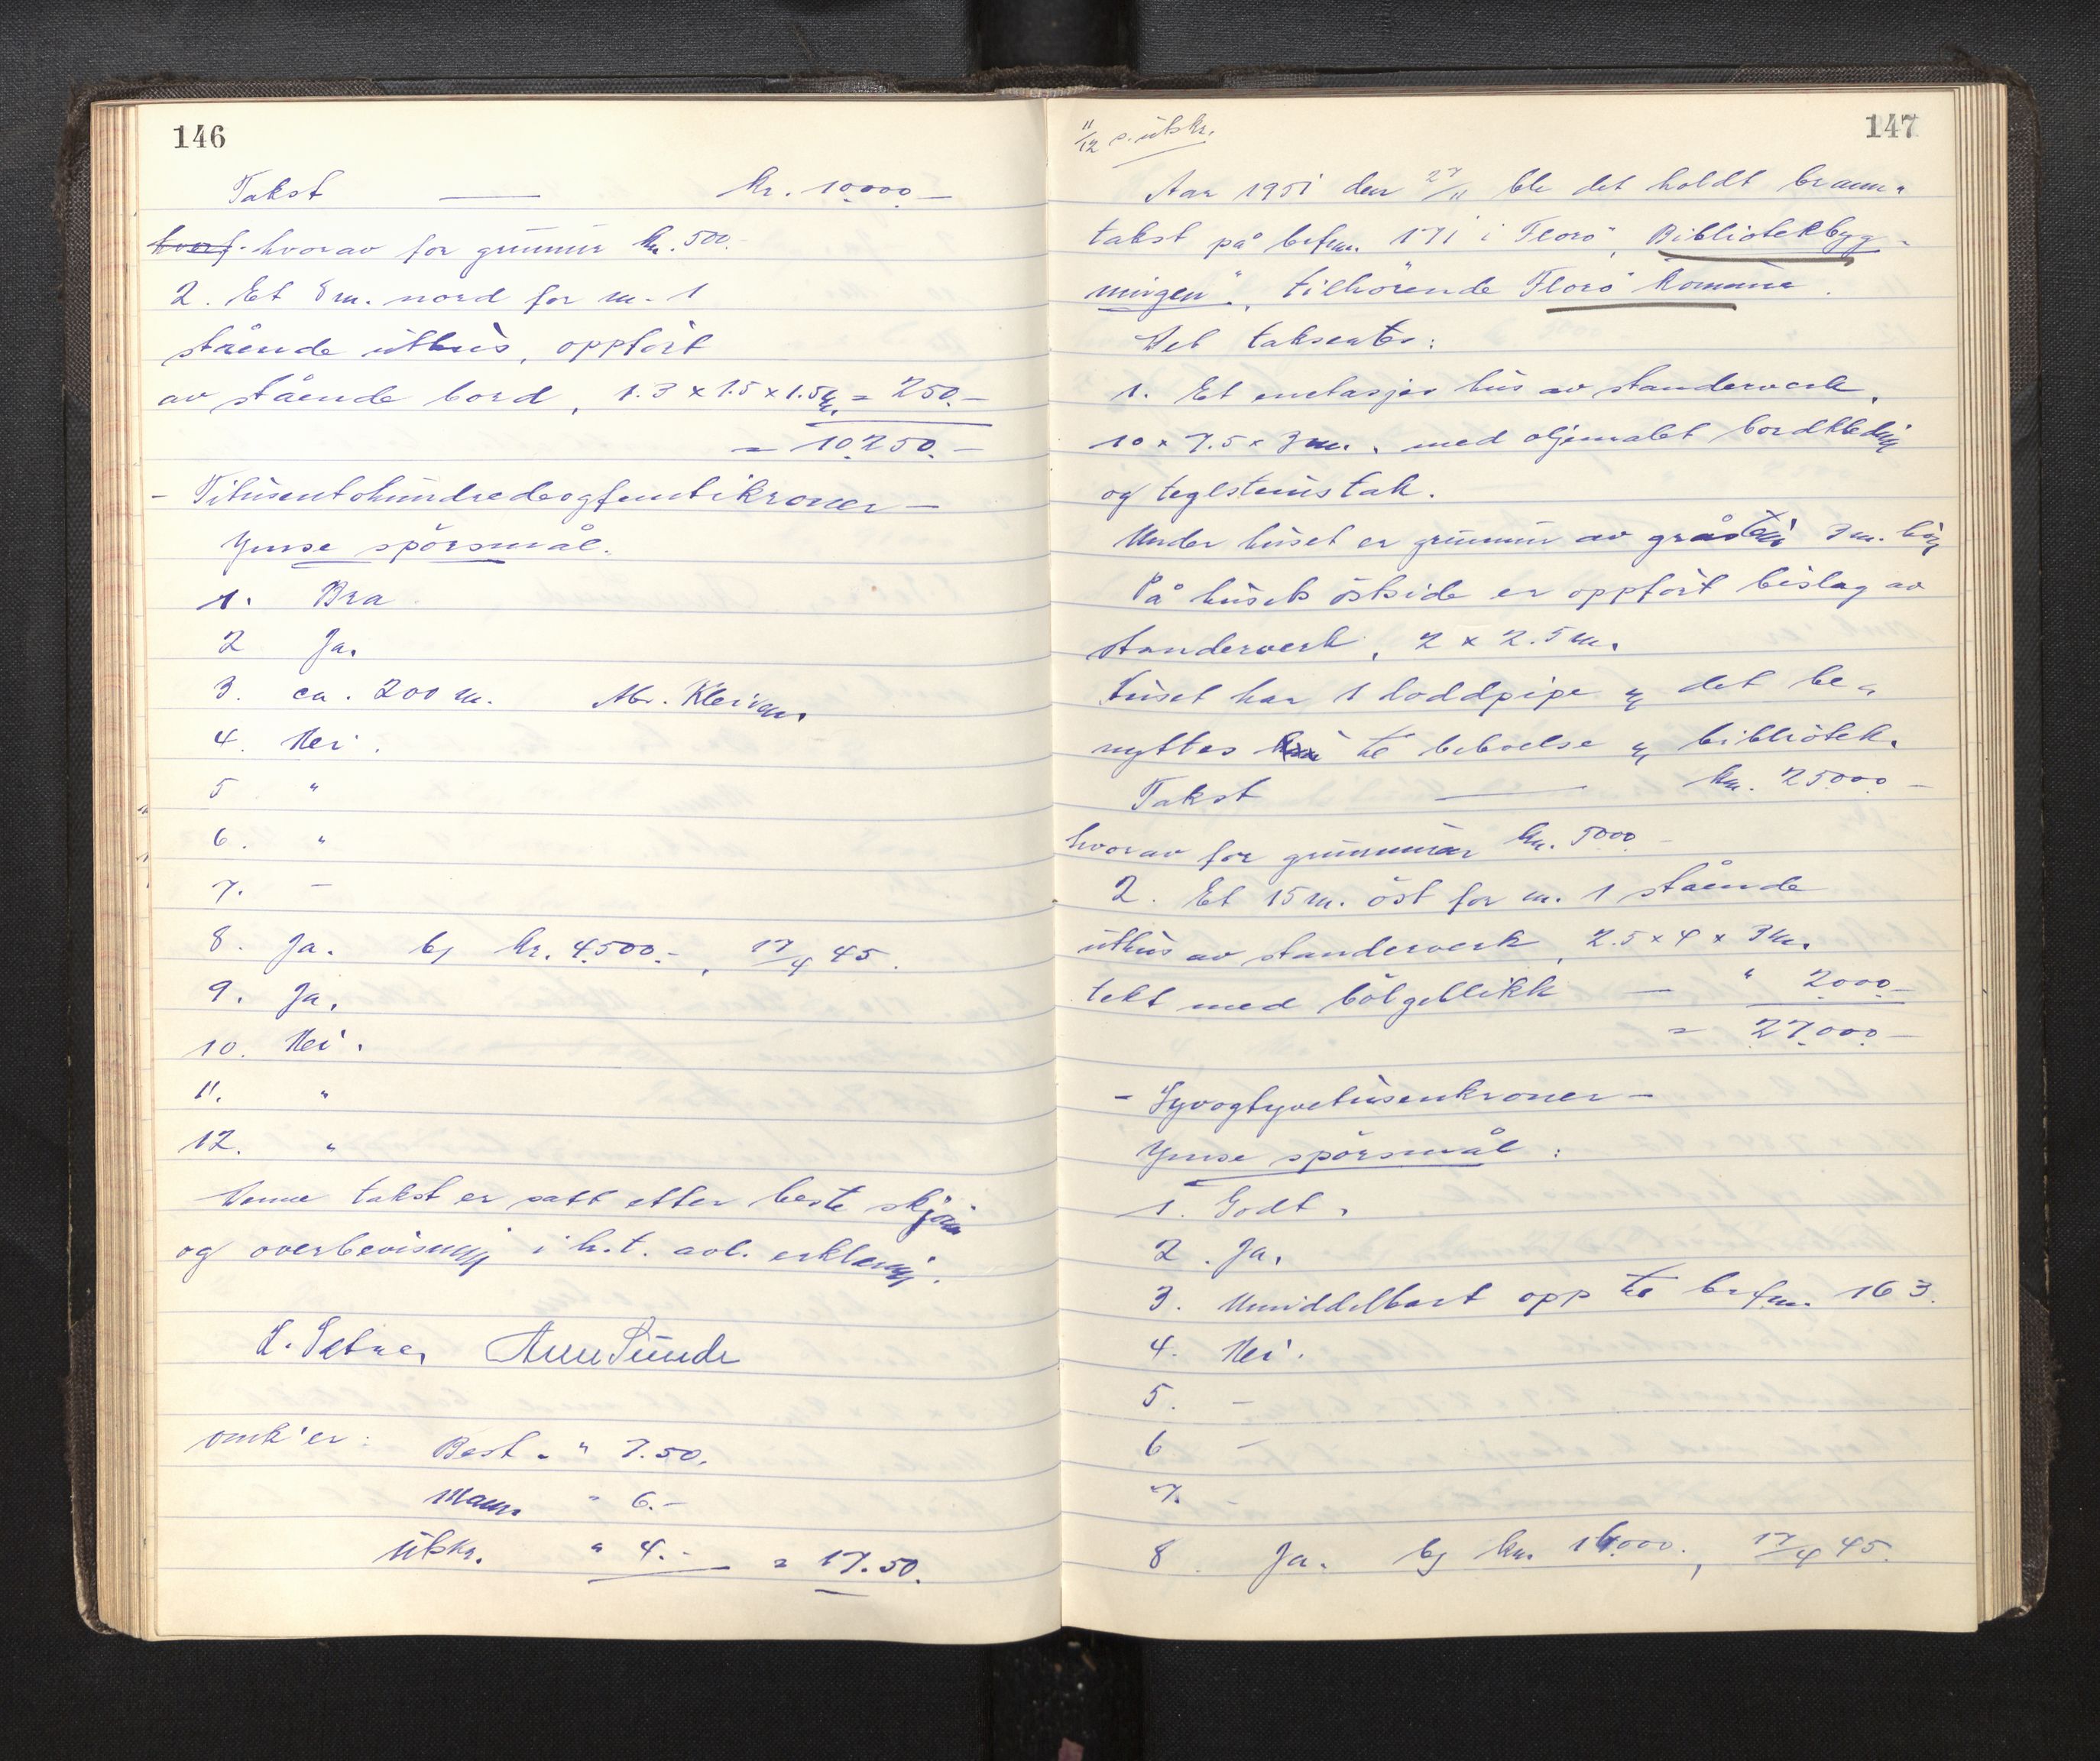 146
Takst — kr. 10.000.—
hverf. hvorav for grunnmur kr. 500.-
2. Et 8 m. nord for m. 1
stående uthus, oppfört
av stående bord, 1.3 x 1.5 x 1.5 = 250.—
= 10.250.—
- Titusentohundredeogfemtikroner —
Ymse spörsmål.
1. Bra
2 Ja.
3. ca. 200 m. Kleiven
4. Nei.
5 "
6. "
7. —
8. Ja. bj kr. 4.500.-, 17/4 45.
9. Ja.
10. Nei.
11. "
12. "
Denne takst er satt efter beste skjönn
og overbevisning i h.t. avl. erklæring.
Sunde
omk'er: Best. " 7.50.
Mann. " 6.-
utskr. " 4.- = 17.50.
147
11/12 s. utskr.
Aar 1951 den 27/11 ble det holdt brann-
takst på brfnr. 171 i Florö, "Bibliotekbyg-
ningen", tilhörende Florö komune.
Det takseres:
1. Et enetasjes hus av standerverk,
10 x 7.5 x 3 m., med oljemalet bordkledning
og teglsteinstak.
Under huset er grunnmur av gråstein 3 m. höi
På husets östside er oppfört bislag av
standerverk, 2 x 2.5 m.
Huset har 1 loddpipe og det be-
nyttes til beboelse og bibliotek.
Takst — kr. 25.000.—
hvorav for grunnmur kr. 5000.—
2. Et 15 m. öst for m. 1 stående
uthus av standerverk, 2.5 x 4 x 3 m.
tekt med bölgeblikk — " 2.000.—
= 27.000.—
- Syvogtyvetusenkroner —
Ymse spörsmål:
1. Godt.
2. Ja.
3. Umiddelbart opp til brfnr. 163.
4. Nei.
5. —
6 —
7. —
8 Ja. bj kr. 16.000., 17/4 45.